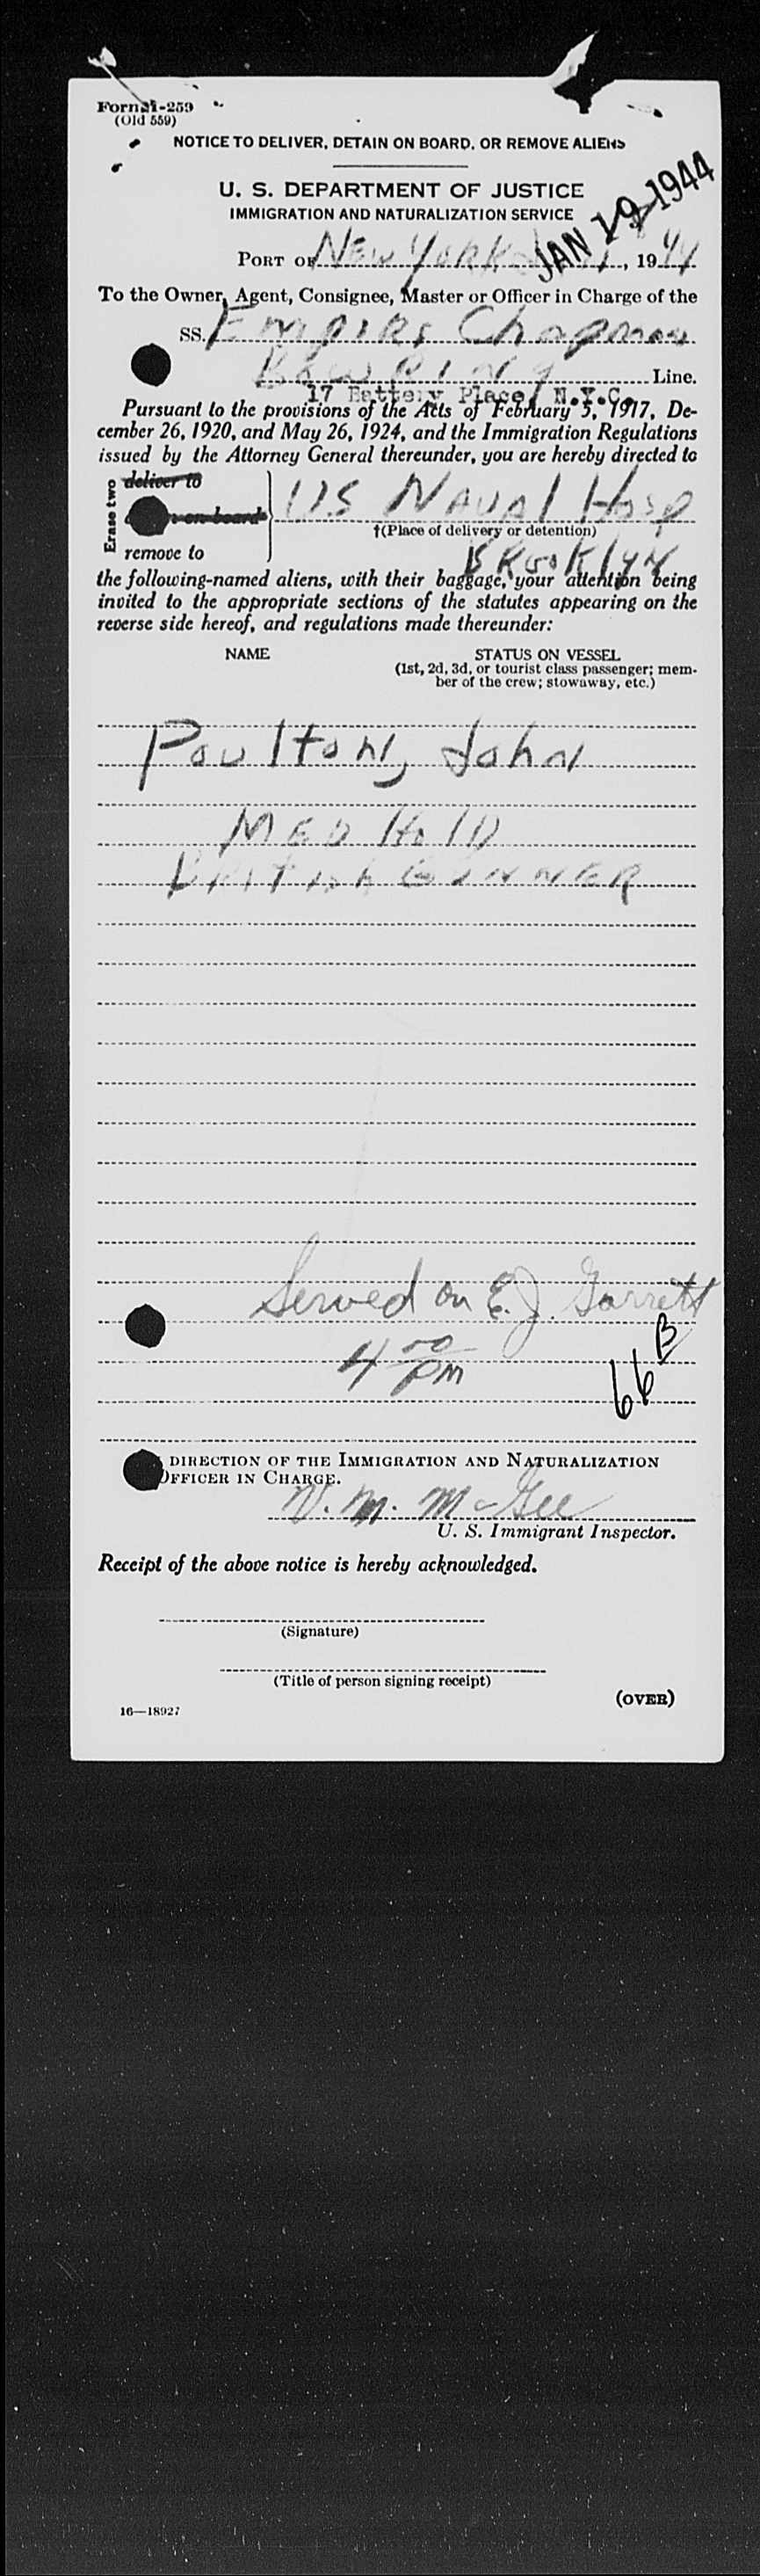 Form I-259
(Old 559)
NOTICE TO DELIVER, DETAIN ON BOARD, OR REMOVE ALIENS
U. S. DEPARTMENT OF JUSTICE
IMMIGRATION AND NATURALIZATION SERVICE
JAN 19 1944
PORT OF New York, 1944
To the Owner, Agent, Consignee, Master or Officer in Charge of the
SS. Empire Chapman
Bowring Line.
17 Battery Place, N.Y.C.
Pursuant to the provisions of the Acts of February 5, 1917, De-
cember 26, 1920, and May 26, 1924, and the Immigration Regulations
issued by the Attorney General thereunder, you are hereby directed to
Erase two
deliver to
on board
remove to
US Naval Hosp
†(Place of delivery or detention)
Brooklyn
the following-named aliens, with their baggage, your attention being
invited to the appropriate sections of the statutes appearing on the
reverse side hereof, and regulations made thereunder:
NAME
STATUS ON VESSEL
(1st, 2d, 3d, or tourist class passenger; mem-
ber of the crew; stowaway, etc.)
Poulton, John
MED HOLD
British GUNNER
Served on E. J. Garrett
4 00 pm
66 B
DIRECTION OF THE IMMIGRATION AND NATURALIZATION
OFFICER IN CHARGE.
V. M. McGee
U. S. Immigrant Inspector.
Receipt of the above notice is hereby acknowledged.
(Signature)
(Title of person signing receipt)
(OVER)
16—18927